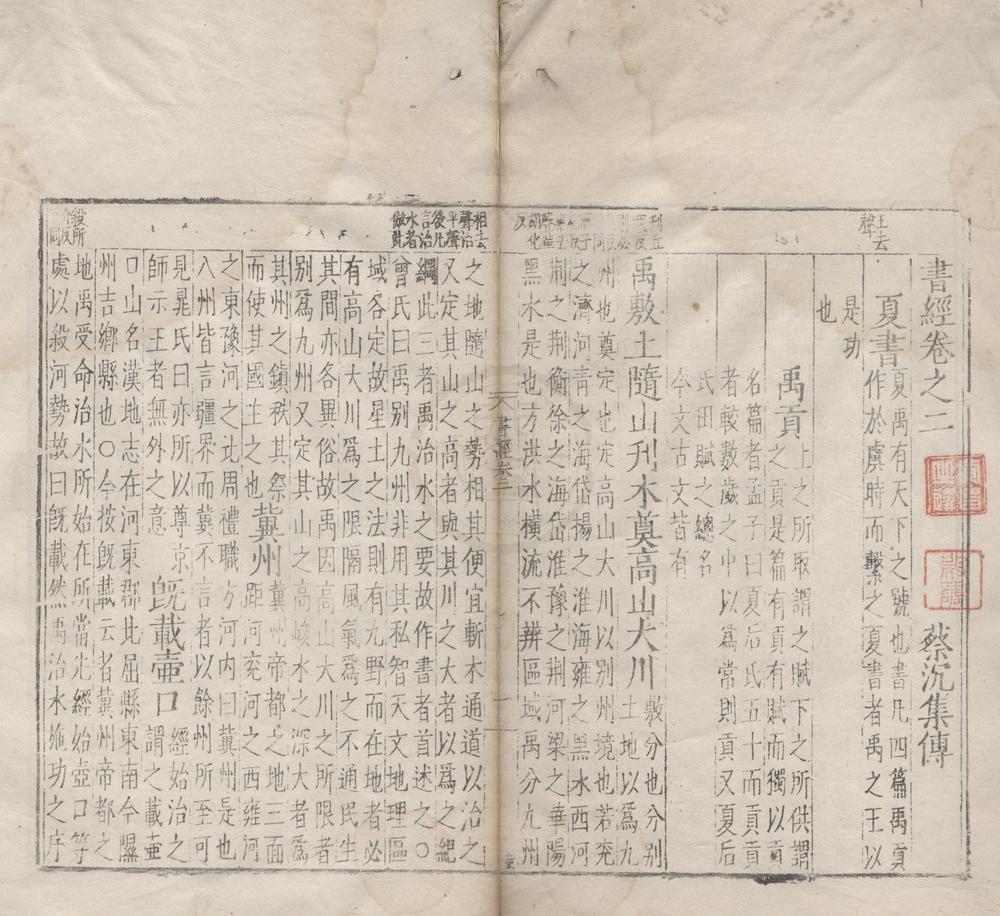 書經卷之二　蔡沉集傳
夏書
夏禹有天下之號也書凡四篇禹貢
作於虞時而繫之夏書者禹之王以
是功
也
禹貢
上之所取謂之賦下之所供謂
之貢是篇有貢有賦而獨以貢
名篇者孟子曰夏后氏五十而貢貢
者較數歲之中以為常則貢又夏后
氏田賦之總名
今文古文皆有
禹敷土隨山刋木奠高山大川
敷分也分別
土地以為九
州也奠定也定高山大川以別州境也若兖
之濟河青之海岱揚之淮海雍之黑水西河
荆之荆衡徐之海岱淮豫之荆河梁之華陽
黑水是也方洪水橫流不辨區域禹分九州
之地隨山之勢相其便宜斬木通道以治之
又定其山之高者與其川之大者以為之紀
綱此三者禹治水之要故作書者首述之○
曾氏曰禹別九州非用其私智天文地理區
域各定故星土之法則有九野而在地者必
有高山大川為之限隔風氣為之不通民生
其間亦各異俗故禹因高山大川之所限者
別爲九州又定其山之高峻水之深大者爲
其州之鎮秩其祭
而使其國主之也
冀州
冀州帝都之地三面
距河兖河之西雍河
之東豫河之北周禮職方河内曰冀州是也
八州皆言疆界而冀不言者以餘州所至可
見晁氏曰亦所以尊京
師示王者無外之意
旣載壺口
經始治之
謂之載壺
口山名漢地志在河東郡北屈縣東南今隰
州吉鄉縣也○今按旣載云者冀州帝都之
地禹受命治水所始在所當先經始壺口等
處以殺河勢故曰旣載然禹治水施功之序
王去
聲
相去
聲治
平聲
後凡
言治
水者
倣此
殺所
書經卷二